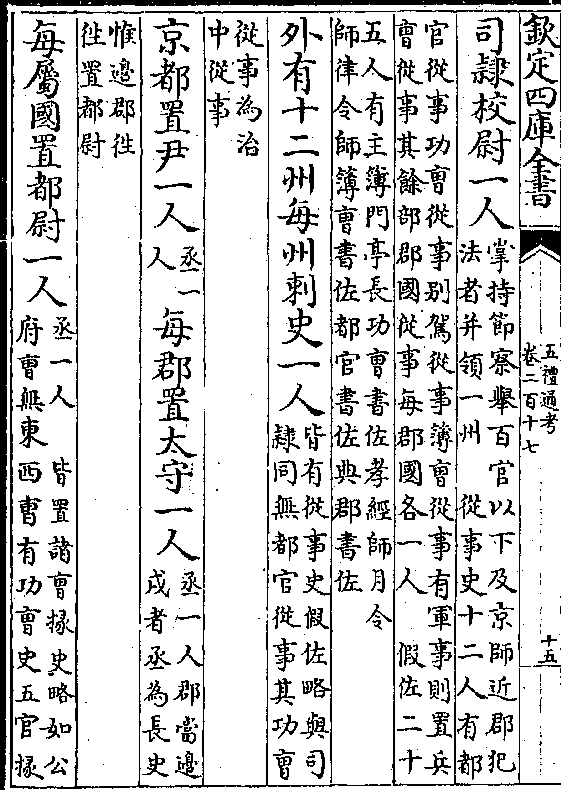 欽定四庫全書
五禮通考
卷二百十七
十五
司隷校尉一人
掌持節察舉百官以下及京師近郡犯
法者并領一州 從事史十二人有都
官從事功曹從事別駕從事簿曹從事有軍事則置兵
曹從事其餘部郡國從事每郡國各一人 假佐二十
五人有主簿門亭長功曹書佐孝經師月令
師律令師簿曹書佐都官書佐典郡書佐
外有十二州每州刺史一人
皆有從事史假佐略與司
隷同無都官從事其功曹
從事為治
中從事
京都置尹一人
丞一
人
每郡置太守一人
丞一人郡當邊
戍者丞為長史
惟邊郡徃
徃置都尉
每屬國置都尉一人
丞一人 皆置諸曹掾史略如公
府曹無東西曹有功曹史五官掾